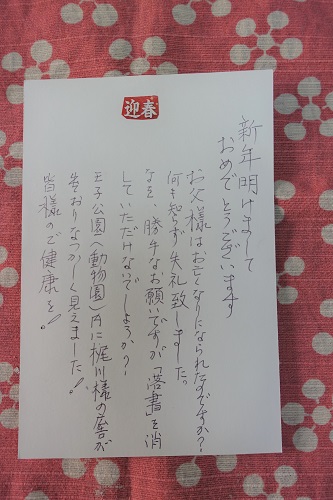 迎春
新年明けまして
おめでとうございます
お父様はお亡くなりになられたのですか?
何も知らず失礼致しました。
なを、勝手なお願いですが「落書」を消
していただけないでしょうか?
王子公園(動物園)内に梶川様の署が
在おりなつかしく見えました!
皆様のご健康を!